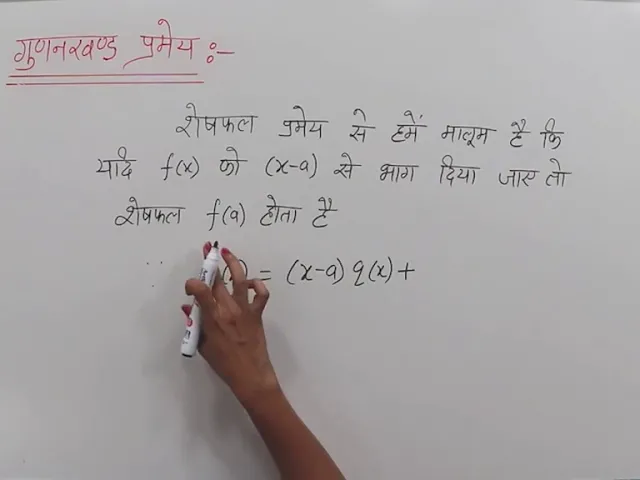 गुणनखण्ड प्रमेय :-
शेषफल प्रमेय से हमें मालूम है कि
यदि f(x) को (x-a) से भाग दिया जाए तो
शेषफल f(a) होता है
∵ (x) = (x-a) q(x) +